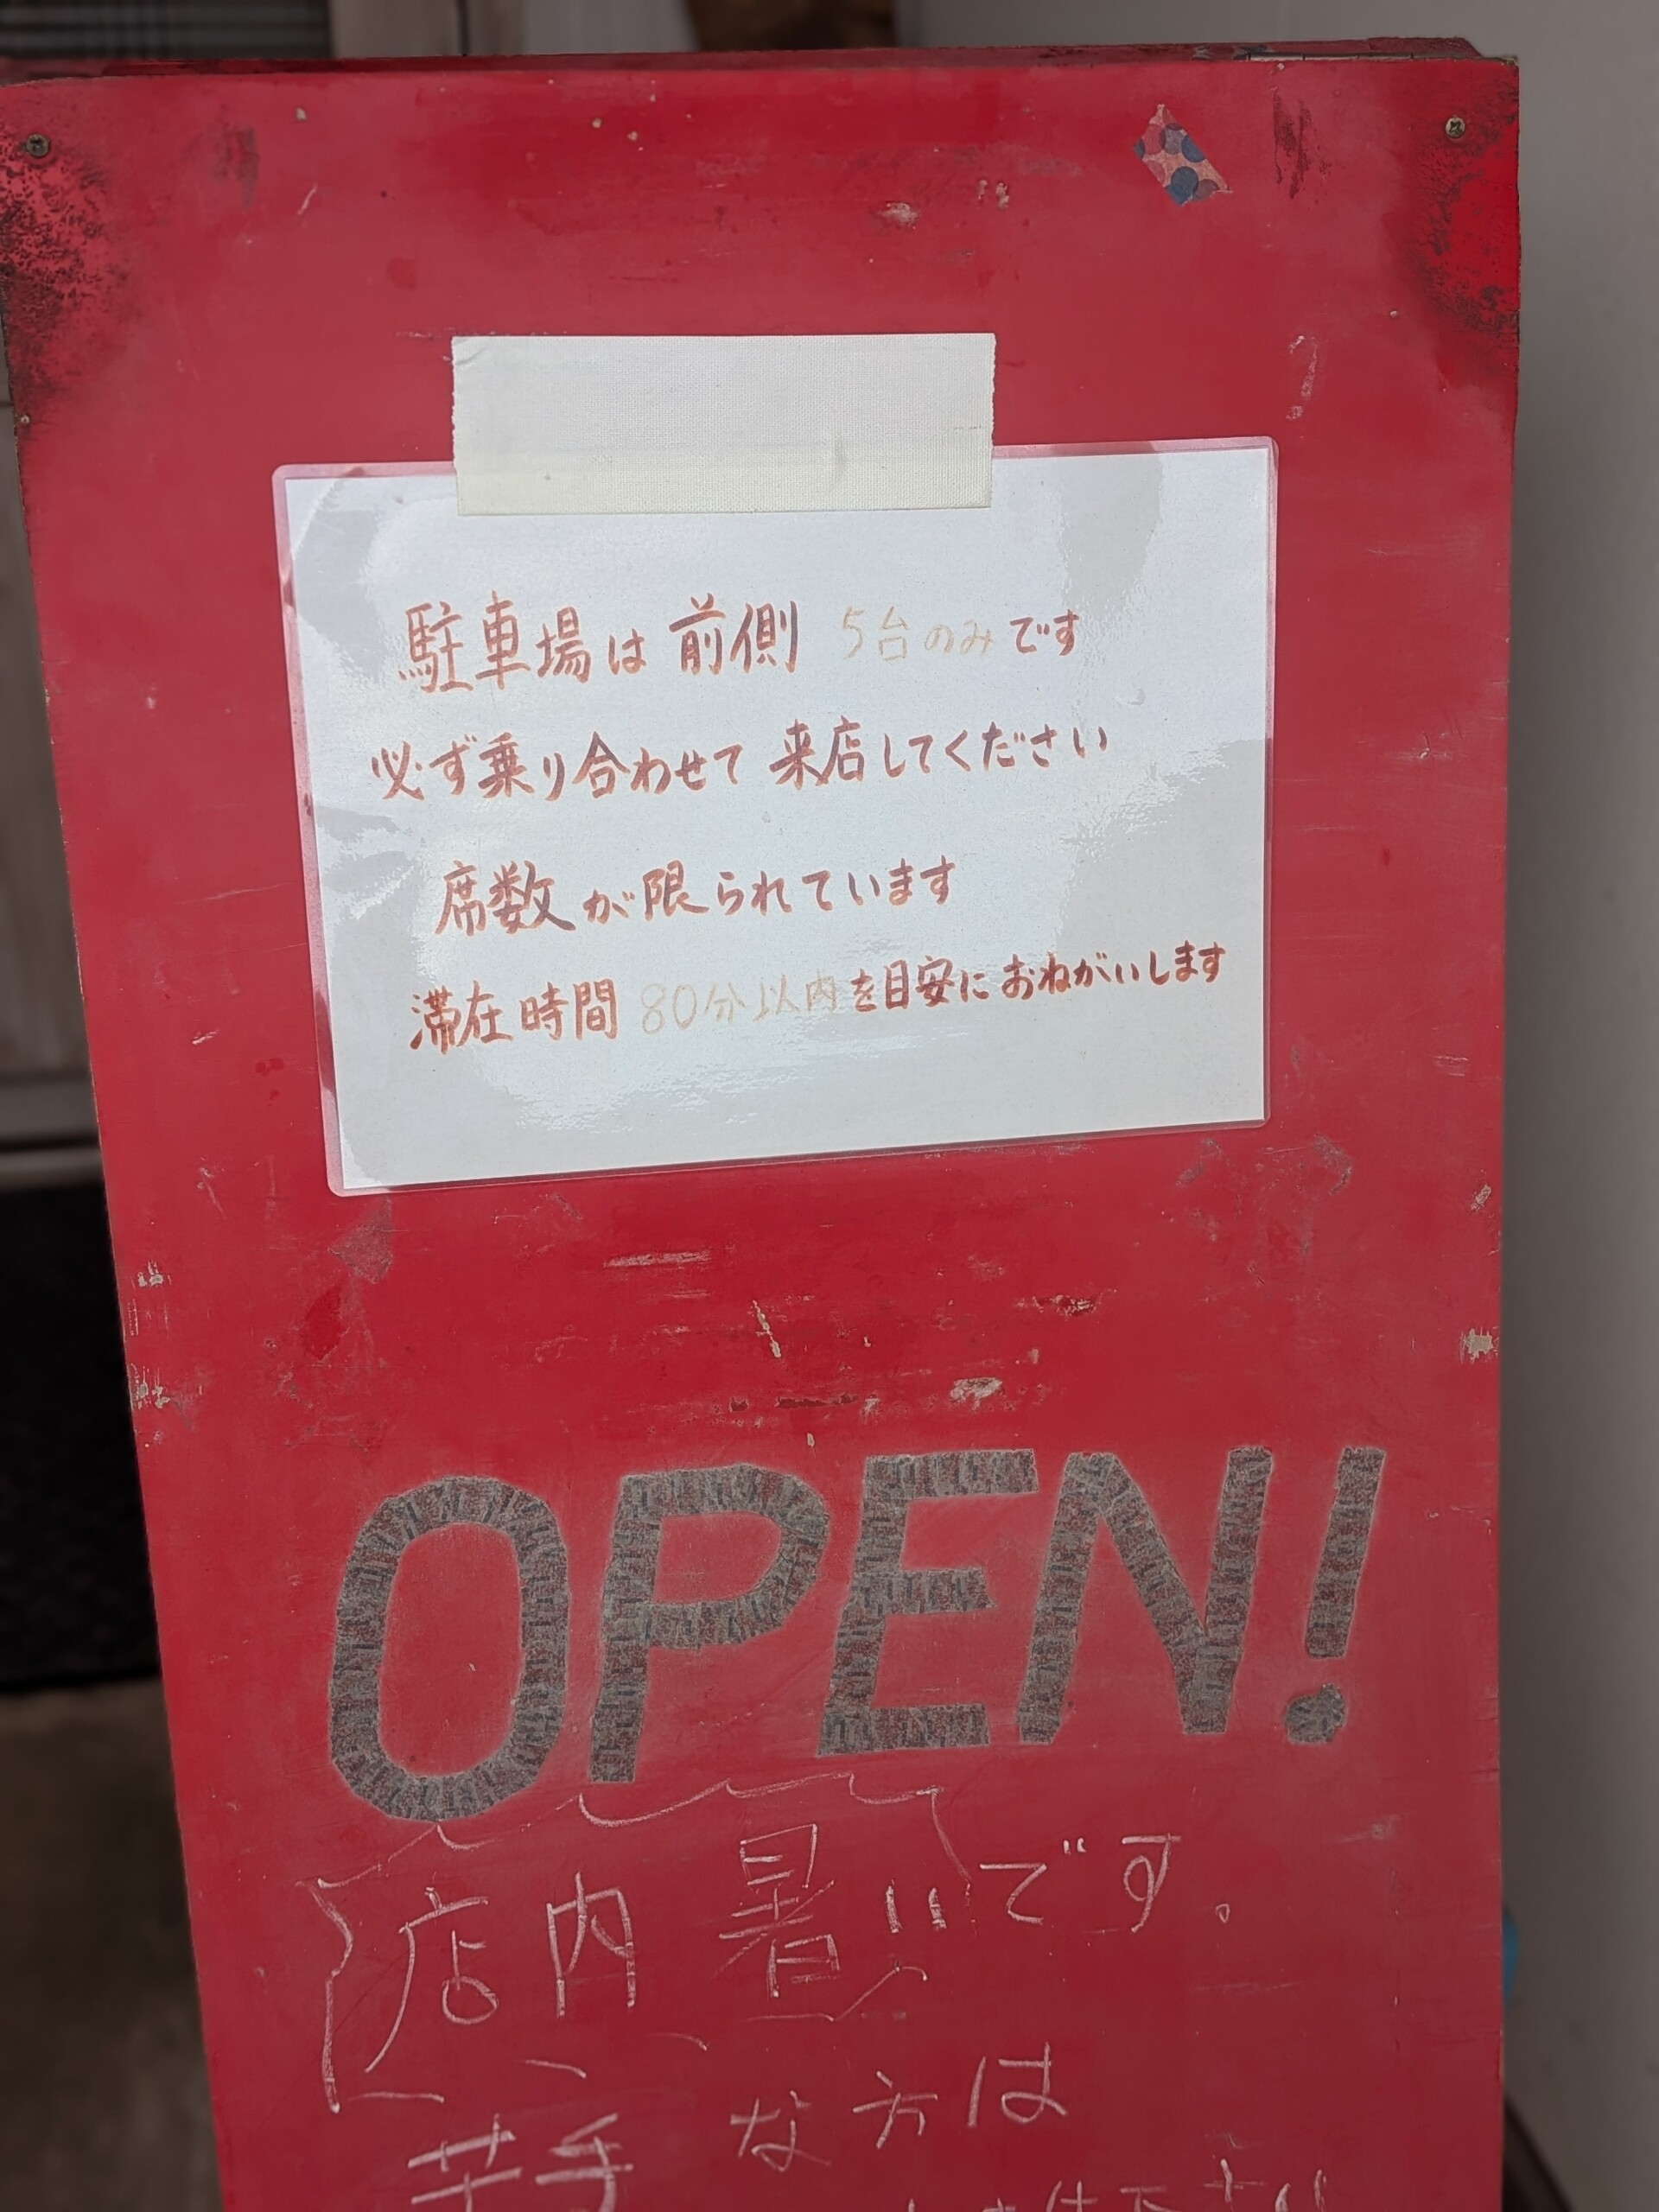 駐車場は前側 5台のみです
必ず乗り合わせて 来店してください
席数が限られています
滞在時間 80分以内を目安に おねがいします
OPEN!
店内 暑いです。
苦手な方は